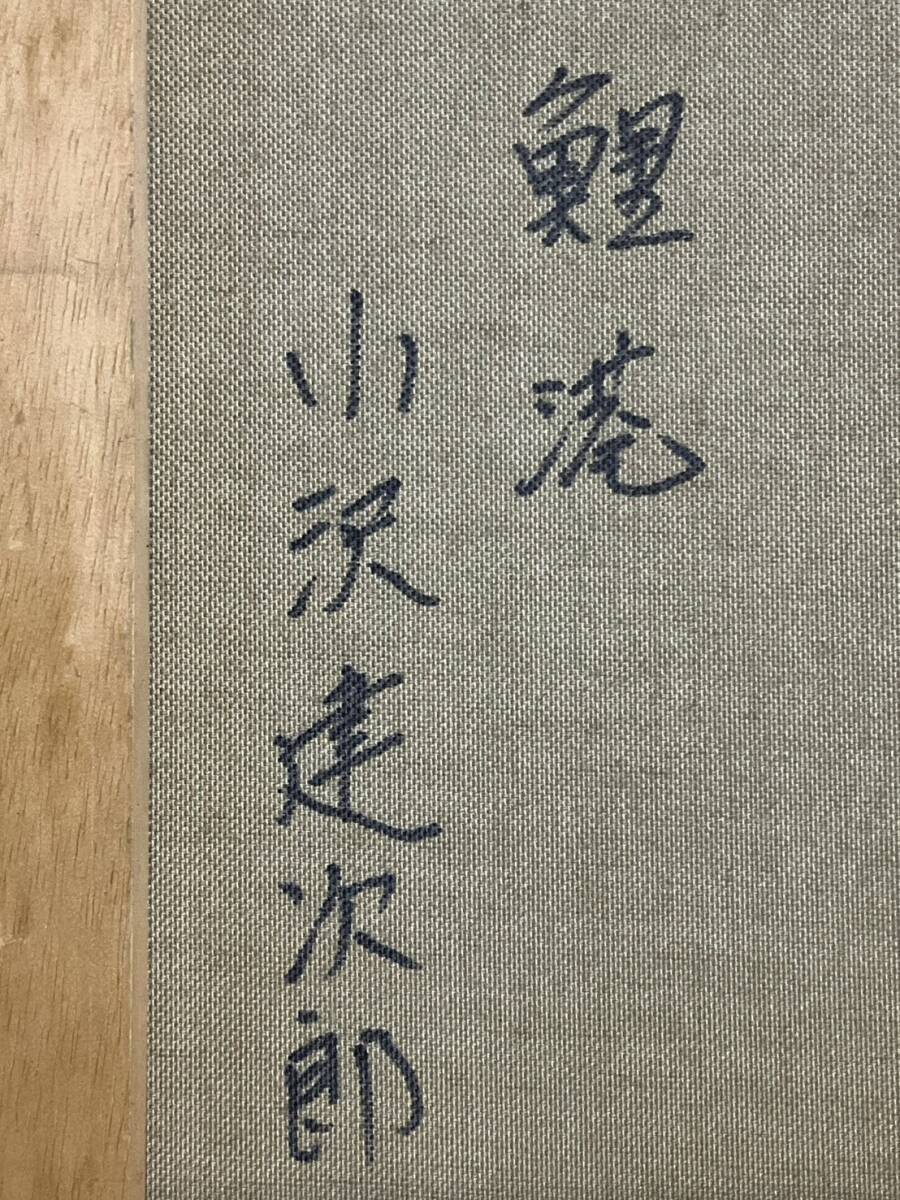 鯉滝
小沢建次郎